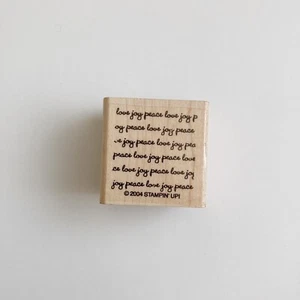 love joy peace love joy p
oy peace love joy peace
ve joy peace love joy pea
peace love joy peace love
ce love joy peace love joy
joy peace love joy peace
© 2004 STAMPIN' UP!